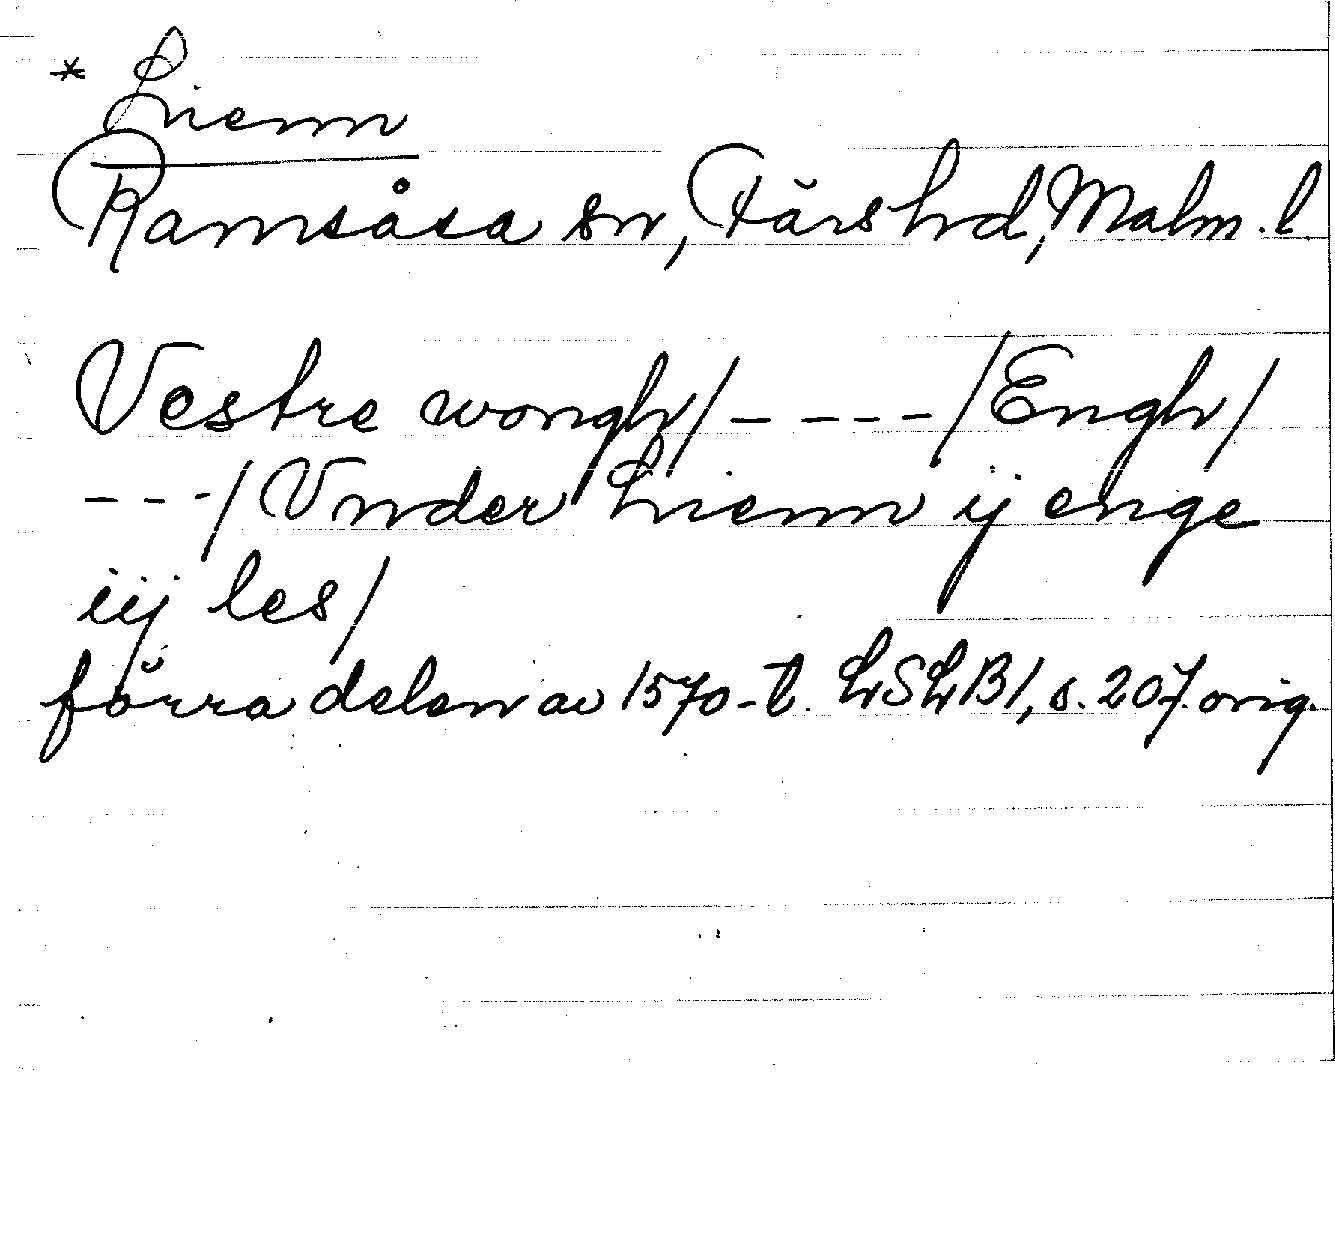 * Lienn
Ramsåsa sn, Färs hd, Malm. l.
Vestre wongh/ - - - - /Engh/
- - -/ Vnder Lienn ij enge
iij les/
förra delen av 1570-t. LSLB1, s. 207. orig.